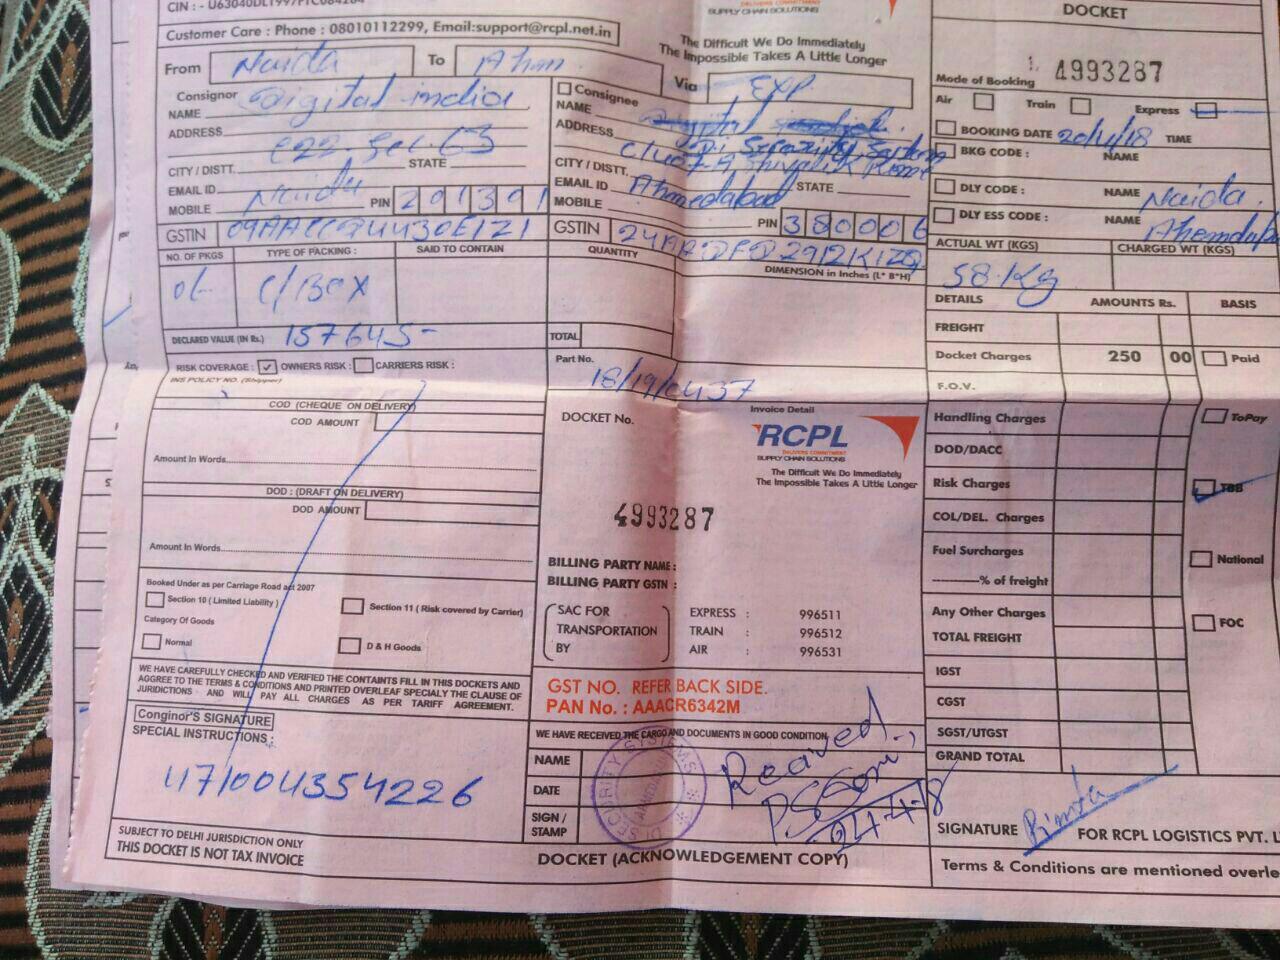 CIN : - U63040DL1997PTC084284
Customer Care : Phone : 08010112299, Email:support@rcpl.net.in
DELIVERS COMMITMENT
SUPPLY CHAIN SOLUTIONS
The Difficult We Do Immediately
The Impossible Takes A Little Longer
DOCKET
4993287
From Noida To Ahm
Via EXP
Mode of Booking
Air Train Express
Consignor
NAME Digital india
ADDRESS
E22. Sec. 63
CITY / DISTT. STATE
EMAIL ID Noida
MOBILE PIN 201301
GSTIN
Consignee
NAME
ADDRESS Di Security System
CITY / DISTT. STATE
EMAIL ID Ahmedabad
MOBILE PIN 380006
GSTIN
BOOKING DATE 20/4/18 TIME
BKG CODE : NAME
DLY CODE : NAME Noida
DLY ESS CODE : NAME
ACTUAL WT (KGS) CHARGED WT (KGS)
58.Kg
NO. OF PKGS TYPE OF PACKING : SAID TO CONTAIN
C/Box
QUANTITY DIMENSION in Inches (L* B*H)
DECLARED VALUE (IN Rs.) 157645-
TOTAL
RISK COVERAGE : OWNERS RISK : CARRIERS RISK :
INS POLICY NO. (Shipper)
Part No.
18/19/0437
DETAILS AMOUNTS Rs. BASIS
FREIGHT
Docket Charges 250 00 Paid
F.O.V.
Handling Charges ToPay
DOD/DACC
Risk Charges TBB
COL/DEL. Charges
Fuel Surcharges National
% of freight
Any Other Charges FOC
TOTAL FREIGHT
IGST
CGST
SGST/UTGST
GRAND TOTAL
COD (CHEQUE ON DELIVERY)
COD AMOUNT
Amount In Words
DOD : (DRAFT ON DELIVERY)
DOD AMOUNT
Amount in Words
Booked Under as per Carriage Road act 2007
Section 10 ( Limited Liability ) Section 11 ( Risk covered by Carrier)
Category Of Goods
Normal D & H Goods
WE HAVE CAREFULLY CHECKED AND VERIFIED THE CONTAINTS FILL IN THIS DOCKETS AND
AGGREE TO THE TERMS & CONDITIONS AND PRINTED OVERLEAF SPECIALY THE CLAUSE OF
JURIDICTIONS AND WILL PAY ALL CHARGES AS PER TARIFF AGREEMENT.
Conginor'S SIGNATURE
SPECIAL INSTRUCTIONS :
471004354226
SUBJECT TO DELHI JURISDICTION ONLY
THIS DOCKET IS NOT TAX INVOICE
DOCKET No. Invoice Detail
RCPL
DELIVERS COMMITMENT
SUPPLY CHAIN SOLUTIONS
The Difficult We Do Immediately
The Impossible Takes A Little Longer
4993287
BILLING PARTY NAME :
BILLING PARTY GSTN :
SAC FOR TRANSPORTATION BY
EXPRESS : 996511
TRAIN : 996512
AIR : 996531
GST NO. REFER BACK SIDE.
PAN No. : AAACR6342M
WE HAVE RECEIVED THE CARGO AND DOCUMENTS IN GOOD CONDITION
NAME
DATE
SIGN / STAMP
DI SECURITY SYSTEMS
AHMEDABAD
Received
24-4-18
DOCKET (ACKNOWLEDGEMENT COPY)
SIGNATURE FOR RCPL LOGISTICS PVT. L
Terms & Conditions are mentioned overle